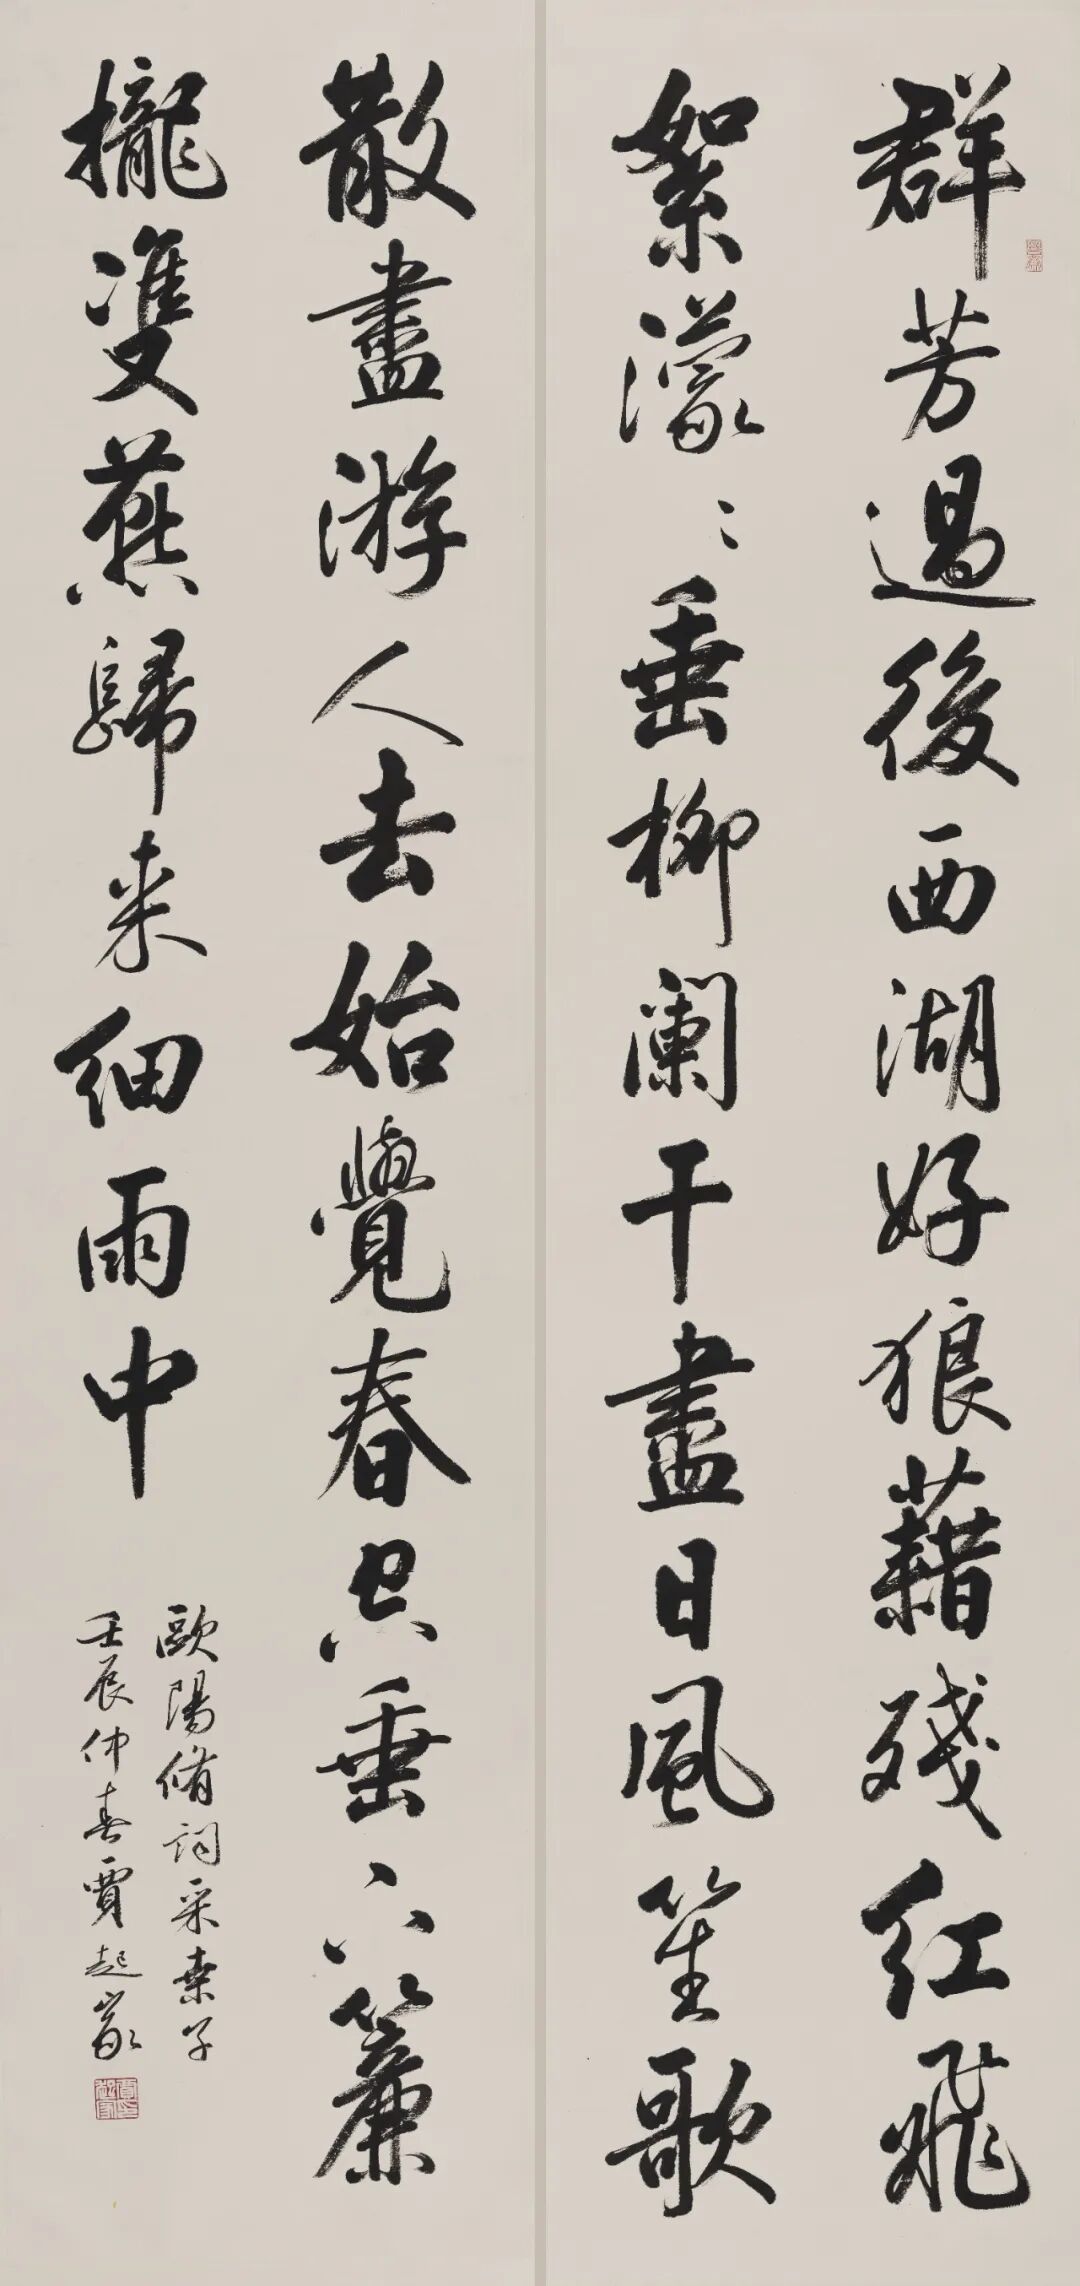 群芳過後西湖好狼藉殘紅飛
絮濛〻垂柳闌干盡日風笙歌
散盡游人去始覺春空垂下簾
攏雙燕歸来細雨中
歐陽脩詞采桑子
壬辰仲春賈起家